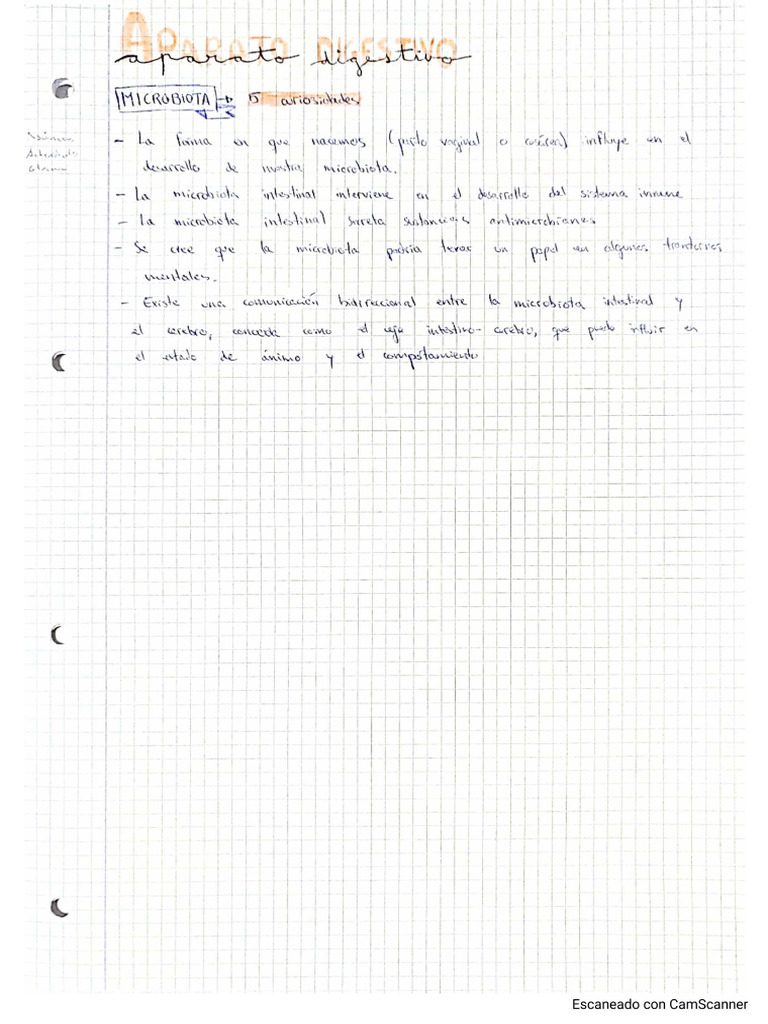 APARATO DIGESTIVO
aparato digestivo
MICROBIOTA → 5 curiosidades
- La forma en que nacemos (parto vaginal o cesárea) influye en el
desarrollo de nuestra microbiota.
- La microbiota intestinal interviene en el desarrollo del sistema inmune
- La microbiota intestinal secreta sustancias antimicrobianas
- Se cree que la microbiota podría tener un papel en algunos trastornos
mentales.
- Existe una comunicación bidireccional entre la microbiota intestinal y
el cerebro, conocida como el eje intestino-cerebro, que puede influir en
el estado de ánimo y el comportamiento
Escaneado con CamScanner